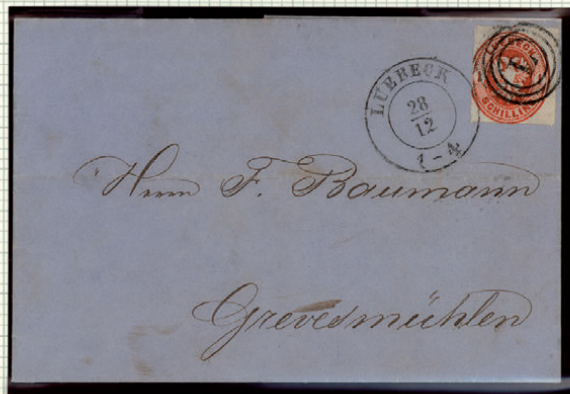 LUEBECK
28
12
1-4
SCHILLIN
Herrn F. Baumann
Grevesmühlen